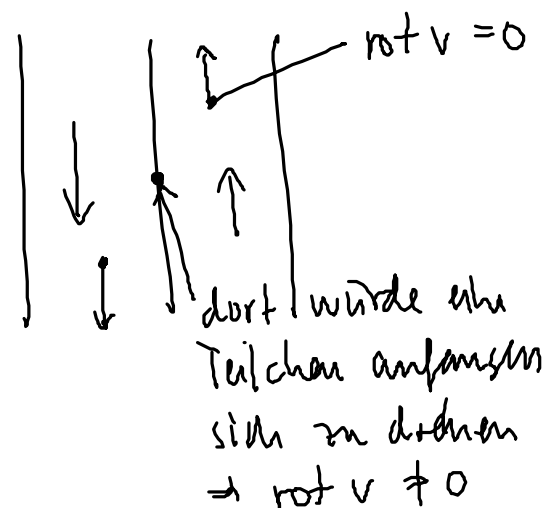 rot v = 0
dort würde ein
Teilchen anfangen
sich zu drehen
⇒ rot v ≠ 0